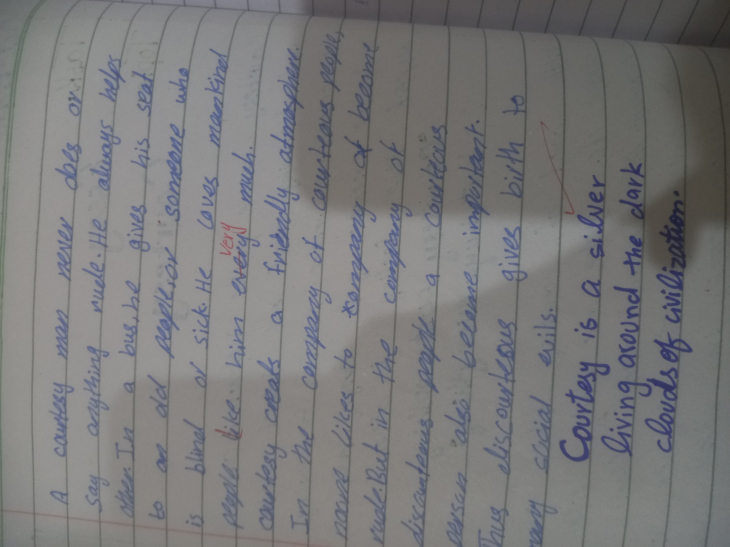 A courtesy man never does or
say anything rude. He always helps
other. In a bus, he gives his seat
to an old people, or someone who
is blind or sick. He loves mankind
people like him every very much.
courtesy creats a friendly atmosphere.
In the company of courteous people,
none likes to company of become
rude. But in the company of
discourteous people a courteous
person also become important.
Thus discourteous gives birth to
many social evils.
Courtesy is a silver
living around the dark
clouds of civilization.